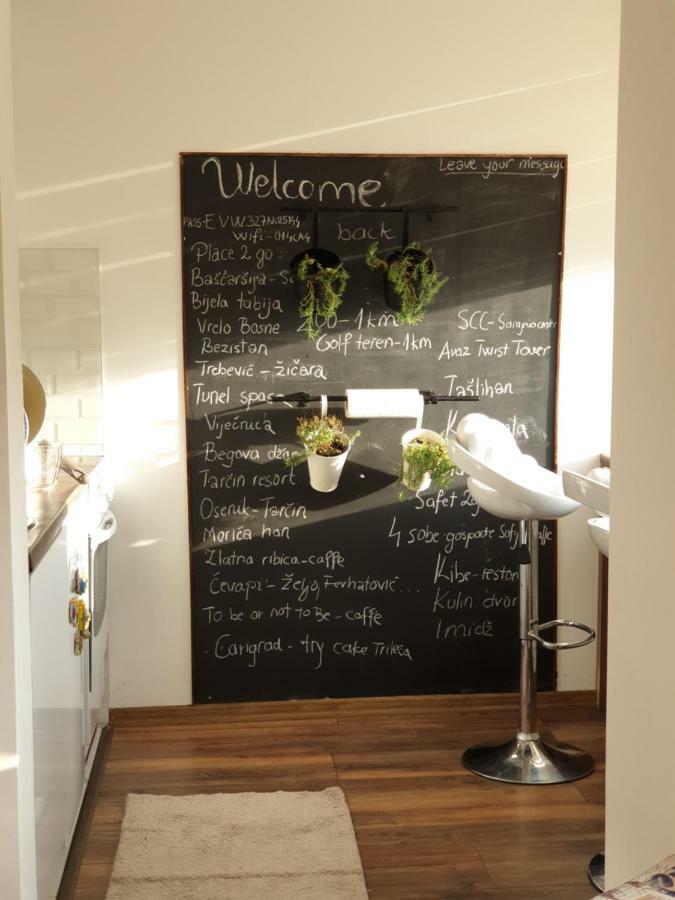 Welcome
back
Leave your message
Place 2 go:
Baščaršija -
Bijela tabija
Vrelo Bosne
200-1km
Bezistan
Golf teren-1km
Trebević - žičara
Tunel spas
Vijećnica
Begova džam
Tarčin resort
Osenik-Tarčin
Morića han
Zlatna ribica-caffe
Ćevapi - Željo, Ferhatović...
To be or not to Be - caffe
Carigrad - try cake Trileća
SCC- Sarajevo center
Avaz Twist Tower
Tašlihan
Safet
4 sobe gospođe Safije caffe
Kibe-restoran
Kulin dvor
Imidž